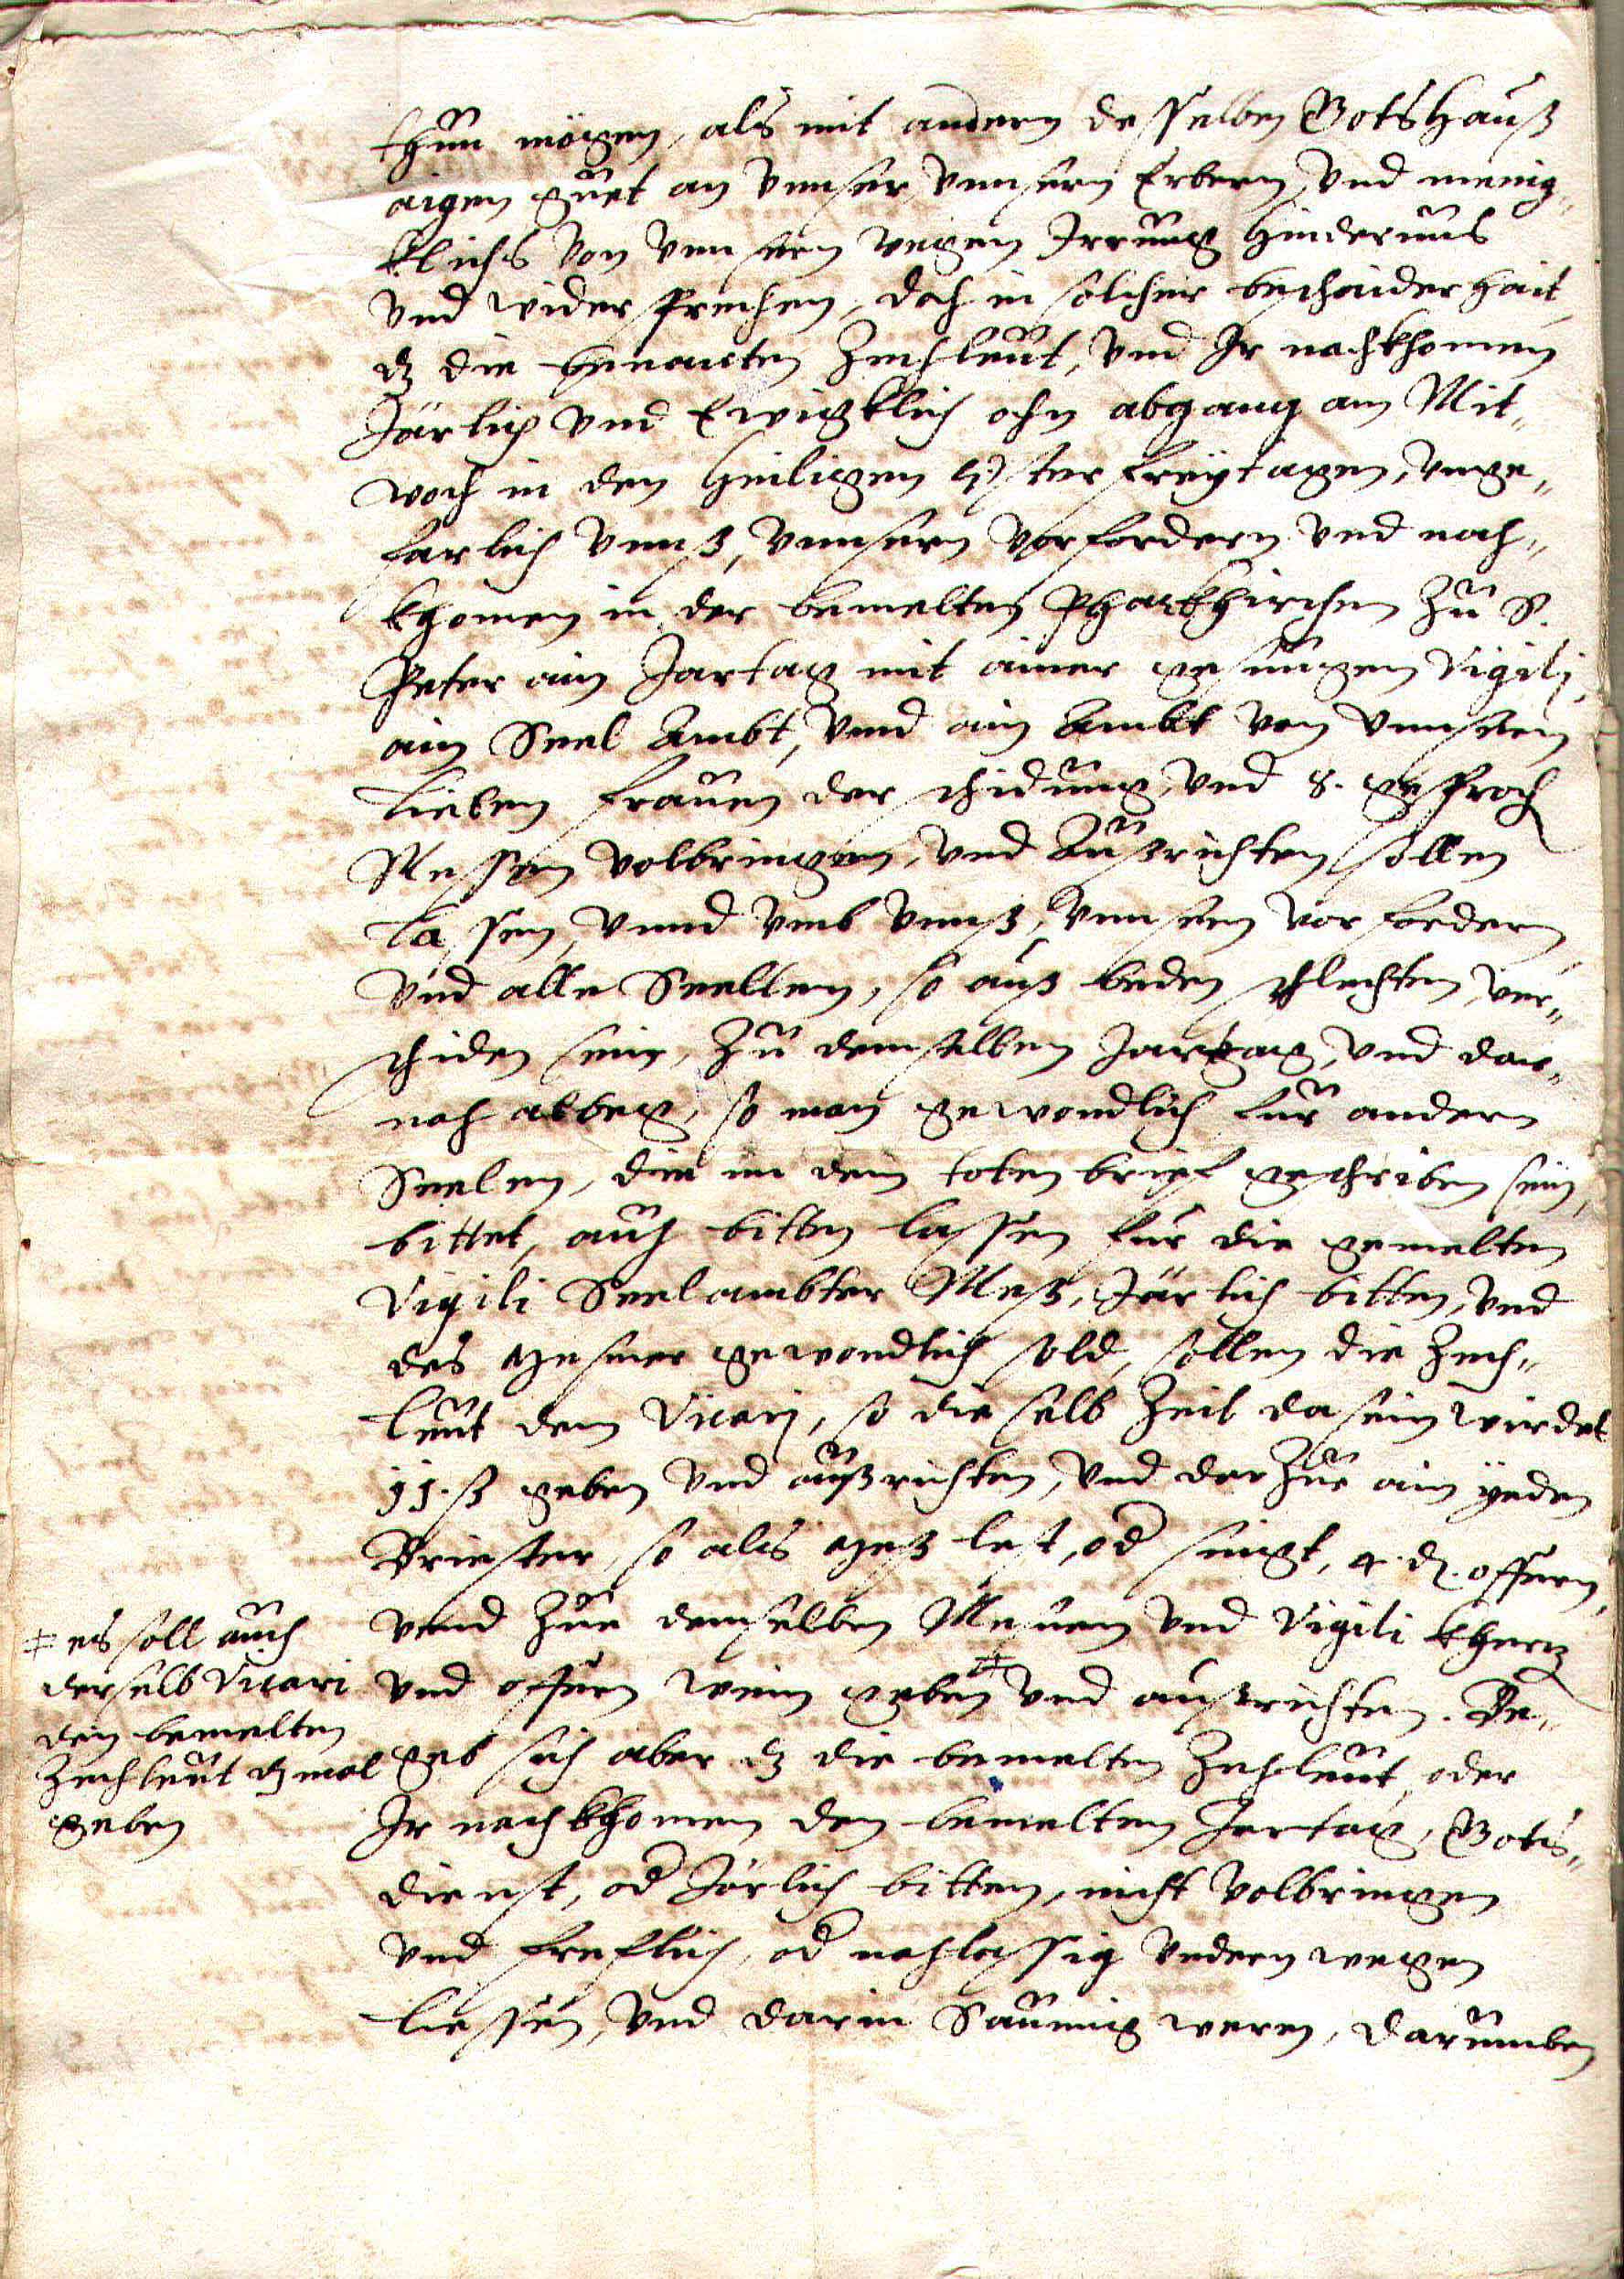 thun mögen, als mit andern desselben Gotshauß
aigen guet an vnnser, vnnsern Erbern, vnd menig„
klichs von vnnsern wegen Irrung Hindernus
vnd widersprechen, doch in solcher beschaiderhait,
dz die benanten Zechleut, vnd Ir nachkhomen
Järlich vnd Ewigklich ohn abgang am Mit„
woch in den Heiligen Osterfreytagen, vnge„
farlich vnnß, vnnsern vorfordern vnd nach„
khomen in der bemelten Pharkhirchen zu S.
Peter ain Jartag mit ainer gesungen Vigilj,
ain Seel Ambt, vnnd ain Ambt von vnnser
Lieben frauen der schidung, vnd 8. gesproch
Messen volbringen, vnd Außrichten sollen
lassen, vnnd vmb vnnß, vnnsern vorfordern,
vnd alle Seellen, so auß beden schlechten, ver„
schiden sein, zu demselben Jartag, vnd dar„
nach albeg, so man gewondlich für andern
Seelen, die in dem toten brief geschriben sein,
bittet, auch bitten lassen für die gemelten
Vigili Seelambter Meß, Järlich bitten, vnd
des Mesner gewondlich sold, sollen die Zech„
leut dem Vicarj, so die selb Zeit da sein wirdet
ß geben vnd außrichten, vnd darzue ain yeden
Briester, so als Meß lest, od singt, 4 d. opffern,
vnnd zue demselben Messen vnd Vigili kherz
vnd opffer wein geben ‡ vnd außrichten. Be„
geb sich aber dz die bemelten Zechleut, oder
Ir nachkhomen den bemelten Jartag, Gots„
dienst, od Järlich bitten, nicht volbringen
vnd freflich, od nachlessig vndern wegen
liessen, vnd darin Saumig weren, darumben
‡ es soll auch
derselb Vicari
den bemelten
Zechleut dz mal
geben